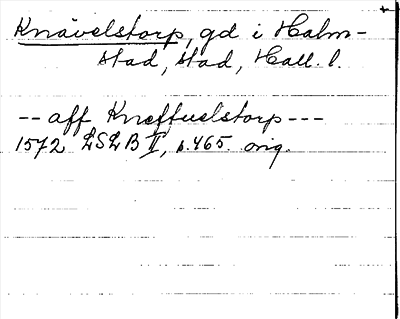 Knävelstorp, gd i Halm-
stad, stad, Hall. l.
-- aff Kneffuelstorp ---
1572 LSLB II, s. 465. orig.